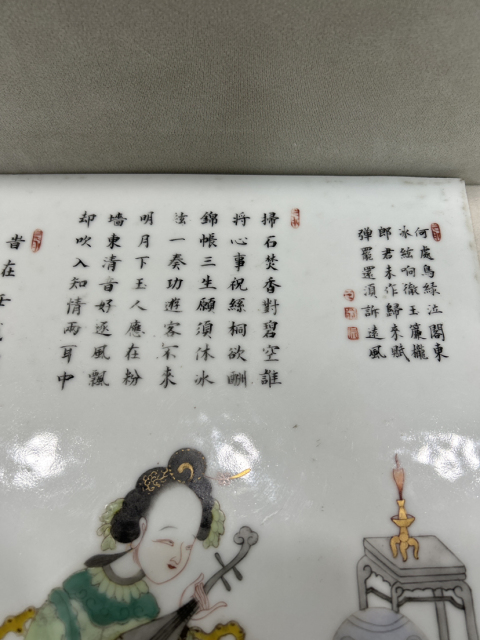 何處烏綠泣閣東
冰絃响徹玉簾櫳
郎君未作歸來賦
彈罷還須訴遠風
掃石焚香對碧空誰
將心事祝絲桐欲酬
錦帳三生願須沐冰
弦一奏功遊客不來
明月下玉人應在粉
墻東清音好逐風飄
却吹入知情兩耳中
在